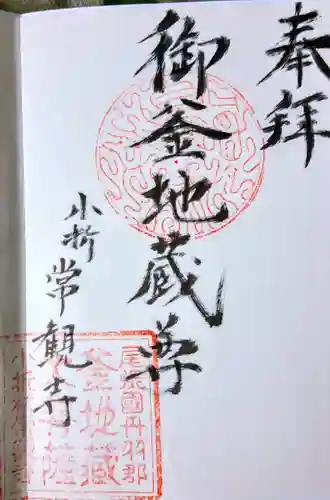 奉拝
御釜地蔵尊
小折 常観寺
尾張國丹羽郡
釜地蔵